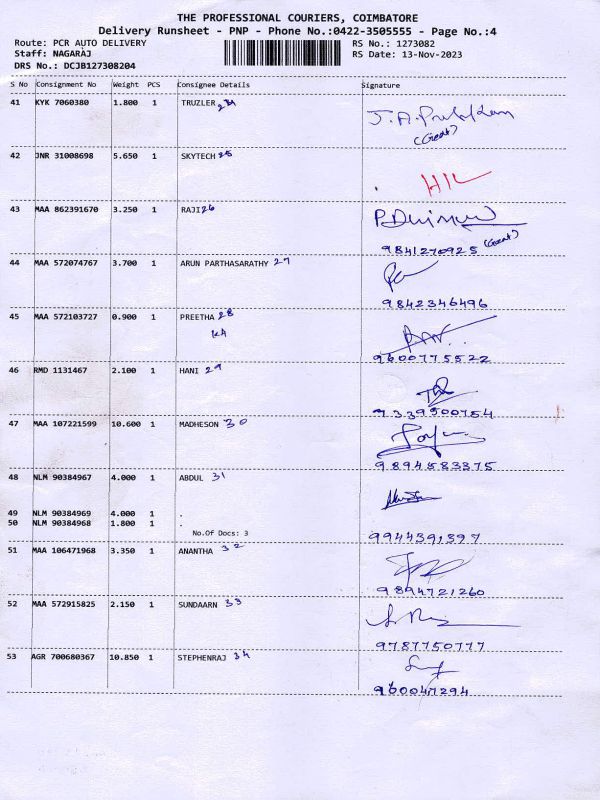 THE PROFESSIONAL COURIERS, COIMBATORE
Delivery Runsheet - PNP - Phone No.:0422-3505555 - Page No.:4
Route: PCR AUTO DELIVERY RS No.: 1273082
Staff: NAGARAJ RS Date: 13-Nov-2023
DRS No.: DCJB127308204
S No Consignment No Weight PCS Consignee Details Signature
41 KYK 7060380 1.800 1 TRUZLER 24
42 JNR 31008698 5.650 1 SKYTECH 25
43 MAA 862391670 3.250 1 RAJI 26
9841270925
44 MAA 572074767 3.700 1 ARUN PARTHASARATHY 27
9842346496
45 MAA 572103727 0.900 1 PREETHA 28
9600775522
46 RMD 1131467 2.100 1 HANI 29
9339500754
47 MAA 107221599 10.600 1 MADHESON 30
9894583375
48 NLM 90384967 4.000 1 ABDUL 31
49 NLM 90384969 4.000 1 .
50 NLM 90384968 1.800 1 .
No.Of Docs: 3
9944391397
51 MAA 106471968 3.350 1 ANANTHA 32
9894721260
52 MAA 572915825 2.150 1 SUNDAARN 33
9787750777
53 AGR 700680367 10.850 1 STEPHENRAJ 34
960047294